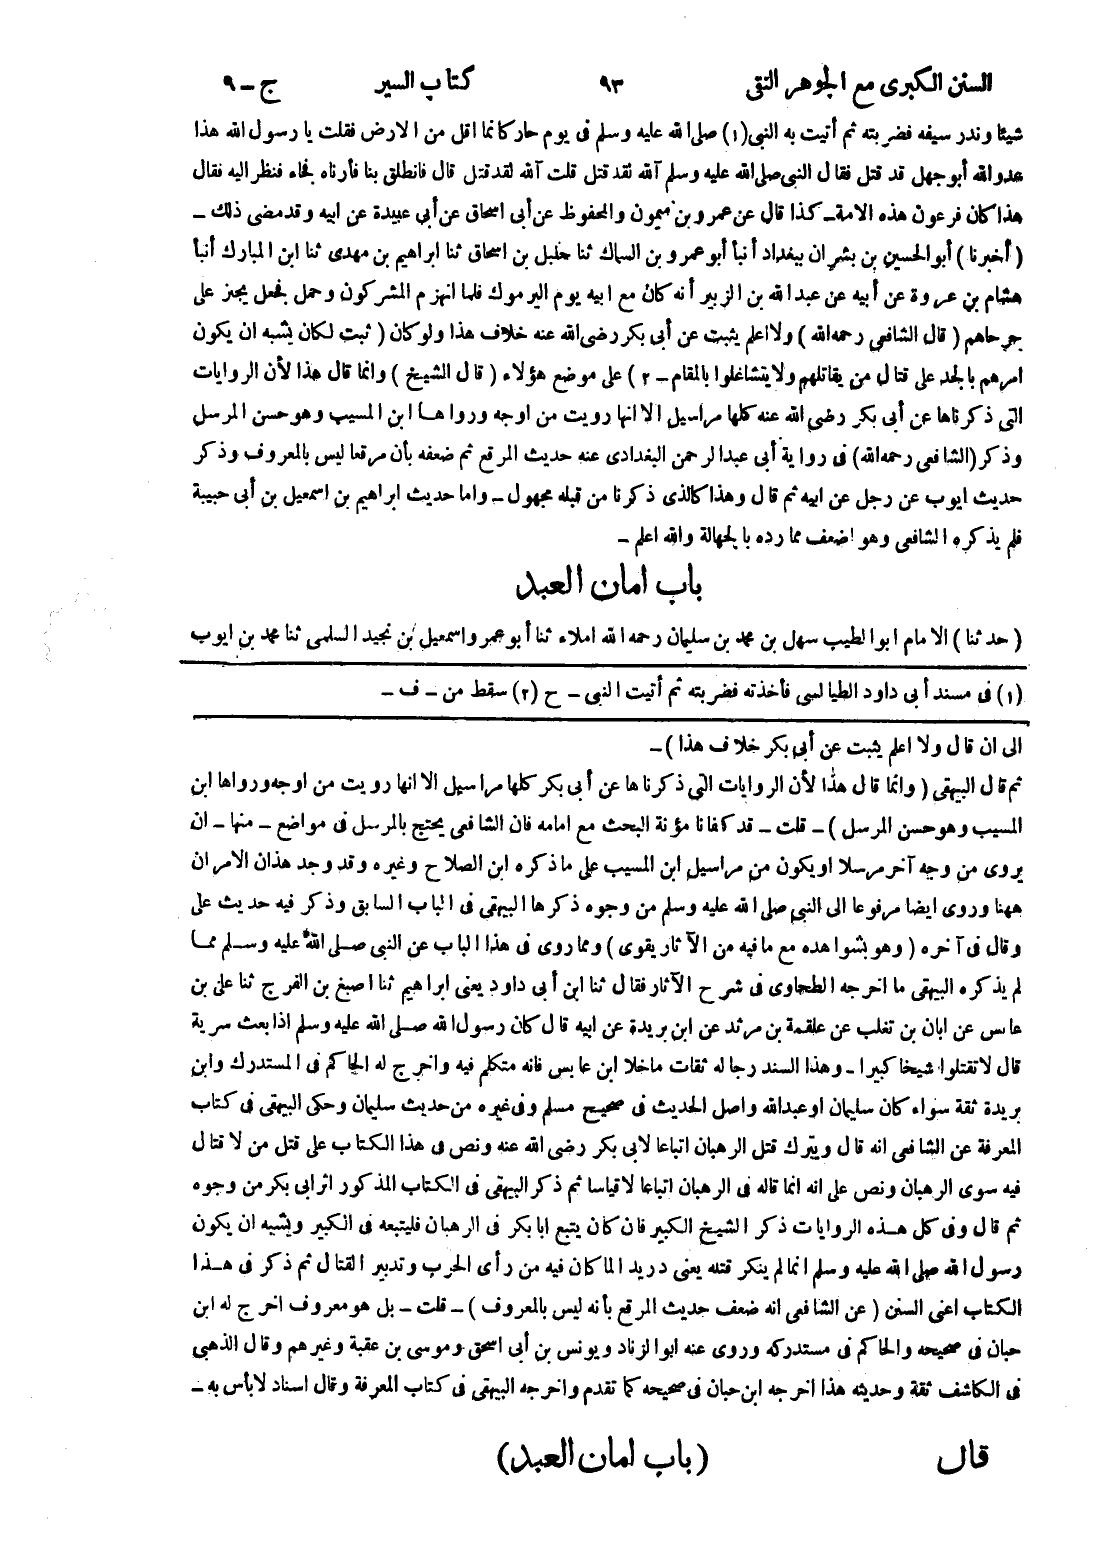 السنن الكبرى مع الجوهر النقى ٩٣ كتاب السير ج ــ ٩
شيئا وندر سيفه فضربته ثم أتيت به النبى (١) صلى الله عليه وسلم فى يوم حار كانما اقل من الارض فقلت يا رسول الله هذا
عدو الله أبو جهل قد قتل فقال النبى صلى الله عليه وسلم آلله لقد قتل قلت آلله لقد قتل قال فانطلق بنا فأرناه فجاء فنظر اليه فقال
هذا كان فرعون هذه الامة ــ كذا قال عن عمرو بن ميمون والمحفوظ عن أبى اسحاق عن أبى عبيدة عن ابيه وقد مضى ذلك ــ
( أخبرنا ) أبو الحسين بن بشران ببغداد أنبأ أبو عمرو بن السماك ثنا حنبل بن اسحاق ثنا ابراهيم بن مهدى ثنا ابن المبارك أنبأ
هشام بن عروة عن أبيه عن عبد الله بن الزبير أنه كان مع ابيه يوم اليرموك فلما انهزم المشركون وحمل فجعل يجز على
جرحاهم ( قال الشافعى رحمه الله ) ولا اعلم يثبت عن أبى بكر رضى الله عنه خلاف هذا ولو كان ( ثبت لكان يشبه ان يكون
امرهم بالجد على قتال من يقاتلهم ولا يتشاغلوا بالمقام ــ ٢ ) على موضع هؤلاء ( قال الشيخ ) وانما قال هذا لأن الروايات
التى ذكرناها عن أبى بكر رضى الله عنه كلها مراسيل الا انها رويت من اوجه ورواها ابن المسيب وهو حسن المرسل
وذكر (الشافعى رحمه الله) فى رواية أبى عبد الرحمن البغدادى عنه حديث المرقع ثم ضعفه بأن مرقعا ليس بالمعروف وذكر
حديث ايوب عن رجل عن ابيه ثم قال وهذا كالذى ذكرنا من قبله مجهول ــ واما حديث ابراهيم بن اسمعيل بن أبى حبيبة
فلم يذكره الشافعى وهو اضعف مما رده بالجهالة والله اعلم ــ
باب امان العبد
( حدثنا ) الامام ابو الطيب سهل بن محمد بن سليمان رحمه الله املاء ثنا أبو عمرو اسمعيل بن نجيد السلمى ثنا محمد بن ايوب
(١) فى مسند أبى داود الطيالسى فأخذته فضربته ثم أتيت النبى ــ ح (٢) سقط من ــ ف ــ
الى ان قال ولا اعلم يثبت عن أبى بكر خلاف هذا ) ــ
ثم قال البيهقى ( وانما قال هذا لأن الروايات التى ذكرناها عن أبى بكر كلها مراسيل الا انها رويت من اوجه ورواها ابن
المسيب وهو حسن المرسل ) ــ قلت ــ قد كفانا مؤنة البحث مع امامه فان الشافعى يحتج بالمرسل فى مواضع ــ منها ــ ان
يروى من وجه آخر مرسلا او يكون من مراسيل ابن المسيب على ما ذكره ابن الصلاح وغيره وقد وجد هذان الامران
ههنا وروى ايضا مرفوعا الى النبى صلى الله عليه وسلم من وجوه ذكرها البيهقى فى الباب السابق وذكر فيه حديث على
وقال فى آخره ( وهو بشواهده مع ما فيه من الآثار يقوى ) ومما روى فى هذا الباب عن النبى صلى الله عليه وسلم مما
لم يذكره البيهقى ما اخرجه الطحاوى فى شرح الآثار فقال ثنا ابن أبى داود يعنى ابراهيم ثنا اصبغ بن الفرج ثنا على بن
عابس عن ابان بن تغلب عن علقمة بن مرثد عن ابن بريدة عن ابيه قال كان رسول الله صلى الله عليه وسلم اذا بعث سرية
قال لا تقتلوا شيخا كبيرا ــ وهذا السند رجاله ثقات ما خلا ابن عابس فانه متكلم فيه واخرج له الحاكم فى المستدرك وابن
بريدة ثقة سواء كان سليمان او عبد الله واصل الحديث فى صحيح مسلم وفى غيره من حديث سليمان وحكى البيهقى فى كتاب
المعرفة عن الشافعى انه قال ويترك قتل الرهبان اتباعا لابى بكر رضى الله عنه ونص فى هذا الكتاب على قتل من لا قتال
فيه سوى الرهبان ونص على انه انما قاله فى الرهبان اتباعا لا قياسا ثم ذكر البيهقى فى الكتاب المذكور اثر ابى بكر من وجوه
ثم قال وفى كل هذه الروايات ذكر الشيخ الكبير فان كان يتبع ابا بكر فى الرهبان فليتبعه فى الكبير ويشبه ان يكون
رسول الله صلى الله عليه وسلم انما لم ينكر قتله يعنى دريد الما كان فيه من رأى الحرب وتدبير القتال ثم ذكر فى هذا
الكتاب اعنى السنن ( عن الشافعى انه ضعف حديث المرقع بأنه ليس بالمعروف ) ــ قلت ــ بل هو معروف اخرج له ابن
حبان فى صحيحه والحاكم فى مستدركه وروى عنه ابو الزناد ويونس بن أبى اسحق وموسى بن عقبة وغيرهم وقال الذهبى
فى الكاشف ثقة وحديثه هذا اخرجه ابن حبان فى صحيحه كما تقدم واخرجه البيهقى فى كتاب المعرفة وقال اسناد لا بأس به ــ
(باب امان العبد)
قال